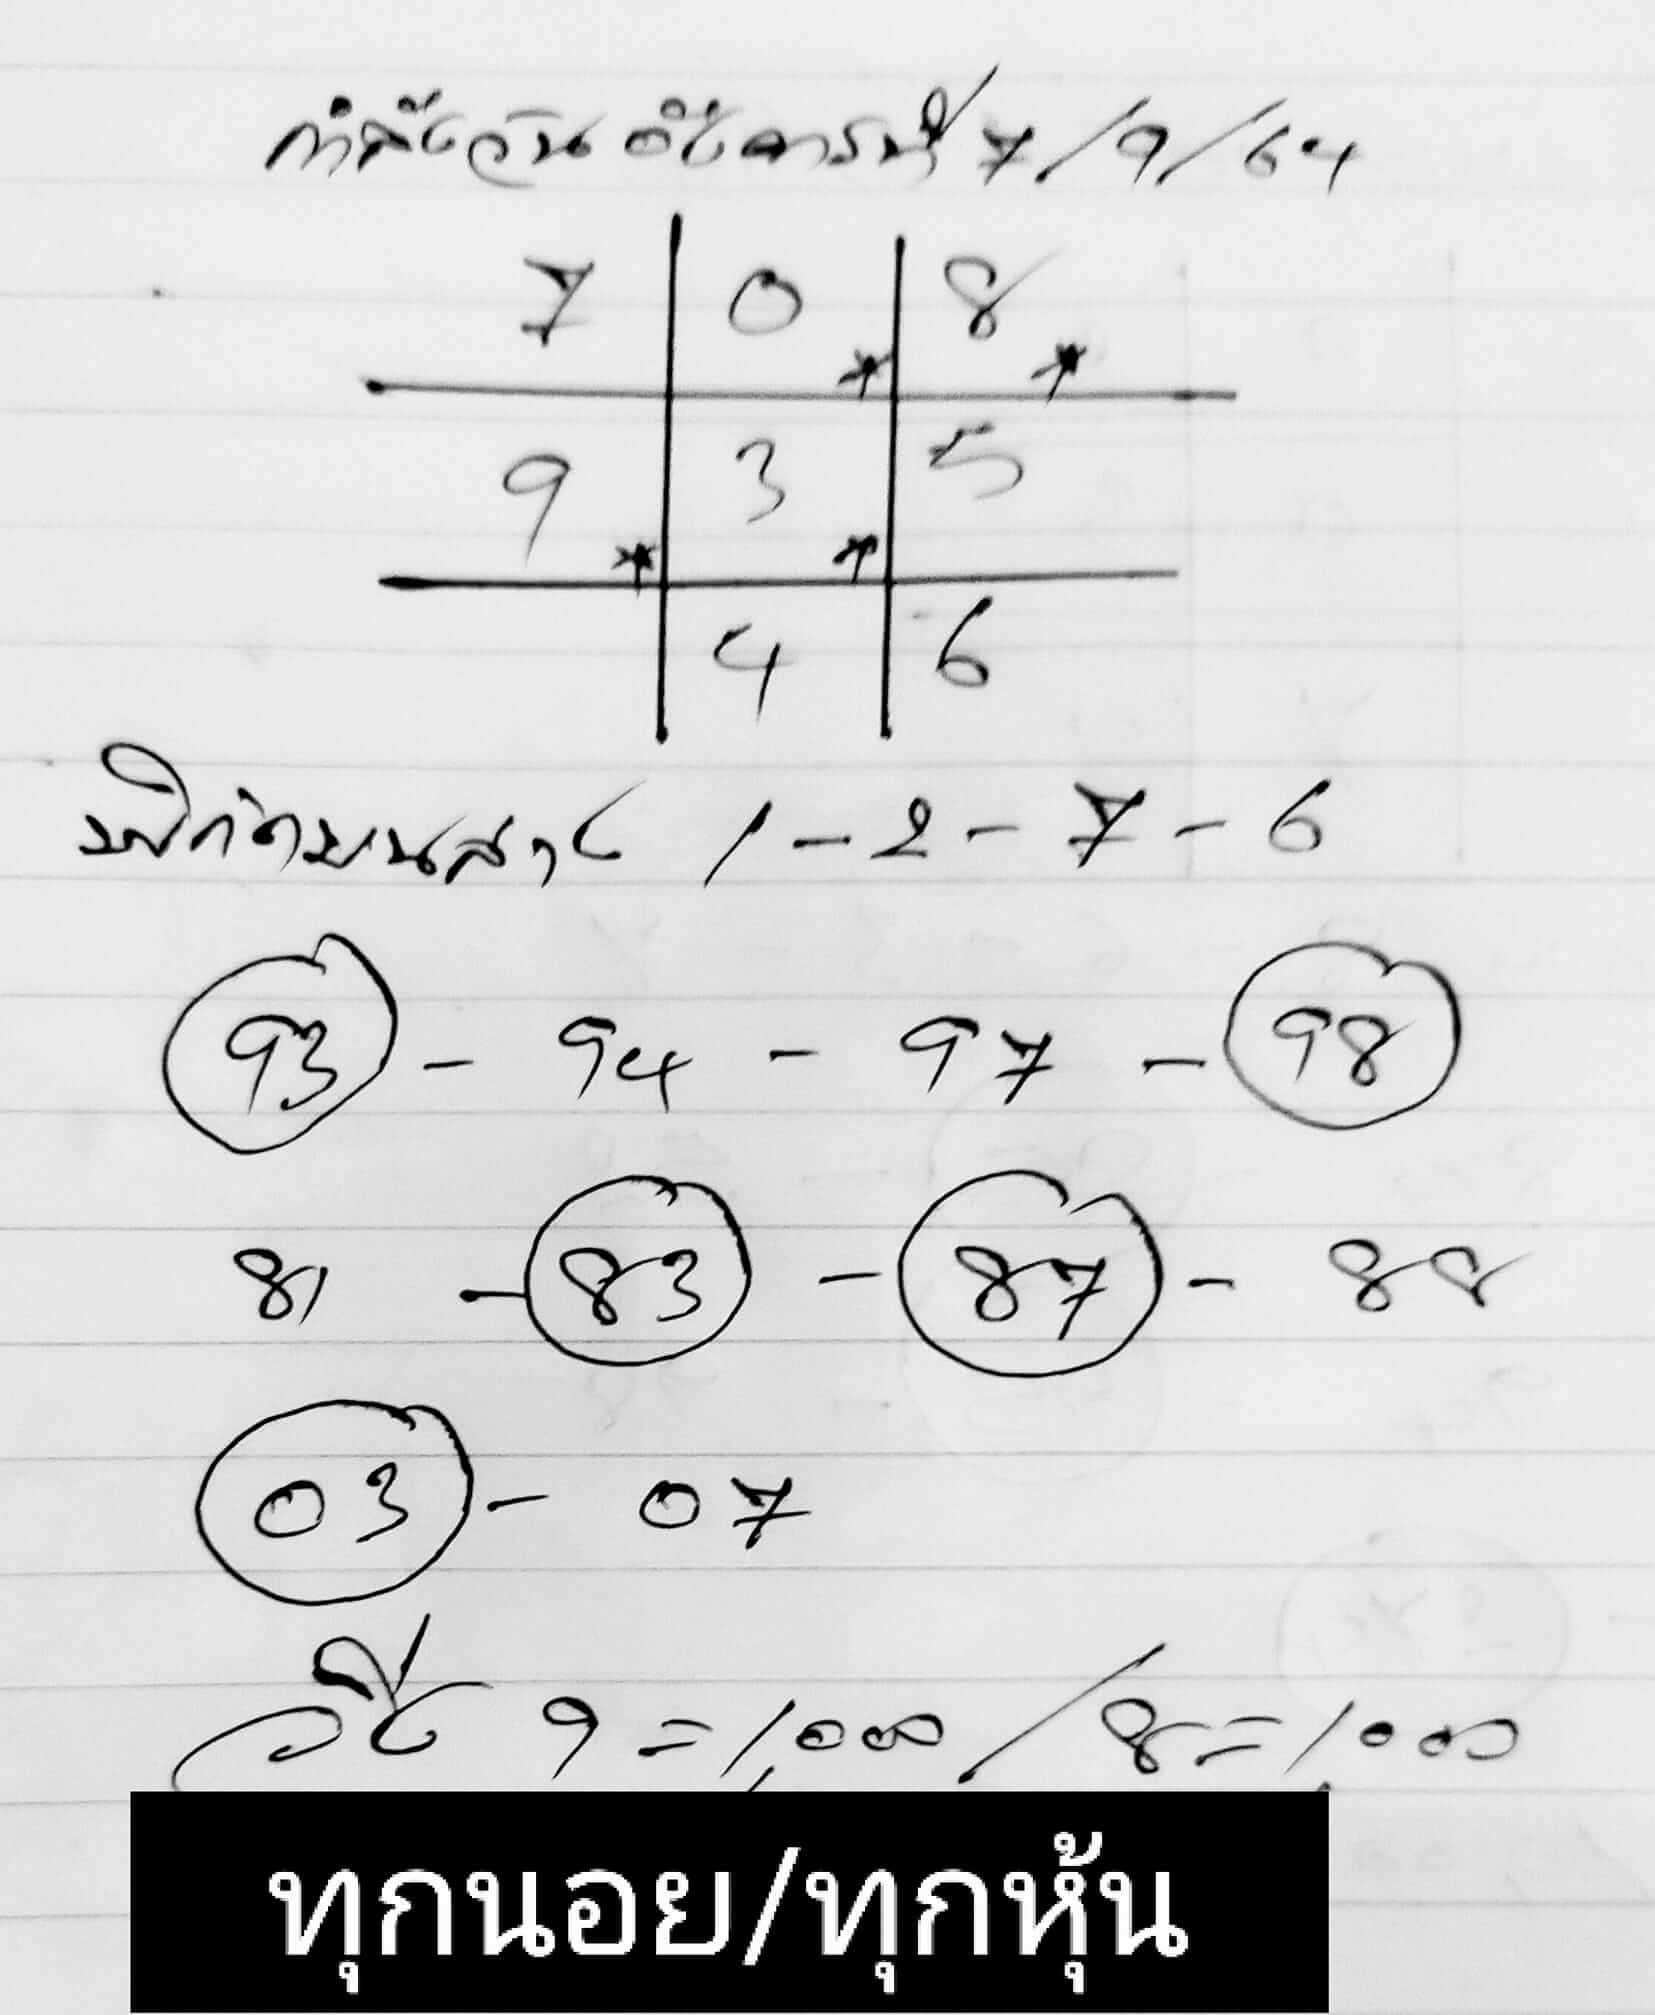 กำลังวันอังคารที่ 7/9/64
7 0 8
9 3 5
4 6
พิกัดบนล่าง 1-2-7-6
93 - 94 - 97 - 98
81 - 83 - 87 - 88
03 - 07
วิ่ง 9=1,000/8=1,000
ทุกนอย/ทุกหุ้น